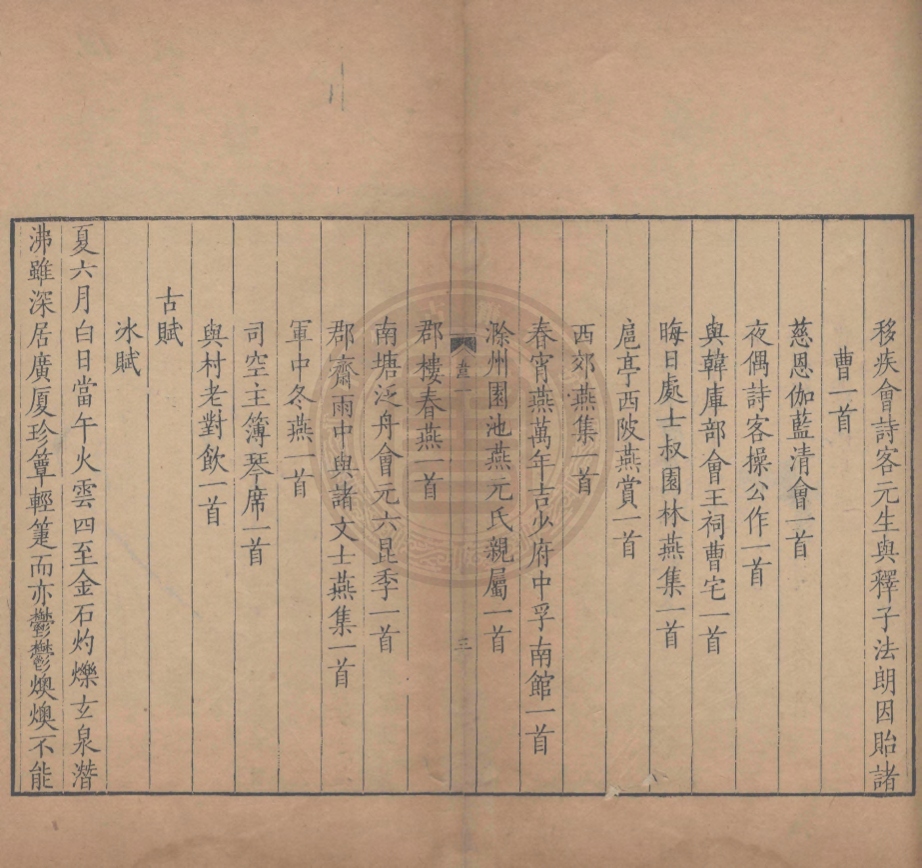 移疾會詩客元生與釋子法朗因貽諸
曹一首
慈恩伽藍清會一首
夜偶詩客操公作一首
與韓庫部會王祠曹宅一首
晦日處士叔園林燕集一首
扈亭西陂燕賞一首
西郊燕集一首
春宵燕萬年吉少府中孚南館一首
滁州園池燕元氏親屬一首
卷一
三
郡樓春燕一首
南塘泛舟會元六昆季一首
郡齋雨中與諸文士燕集一首
軍中冬燕一首
司空主簿琴席一首
與村老對飲一首
古賦
冰賦
夏六月白日當午火雲四至金石灼爍玄泉潛
沸雖深居廣厦珍簟輕箑而亦鬱鬱燠燠不能